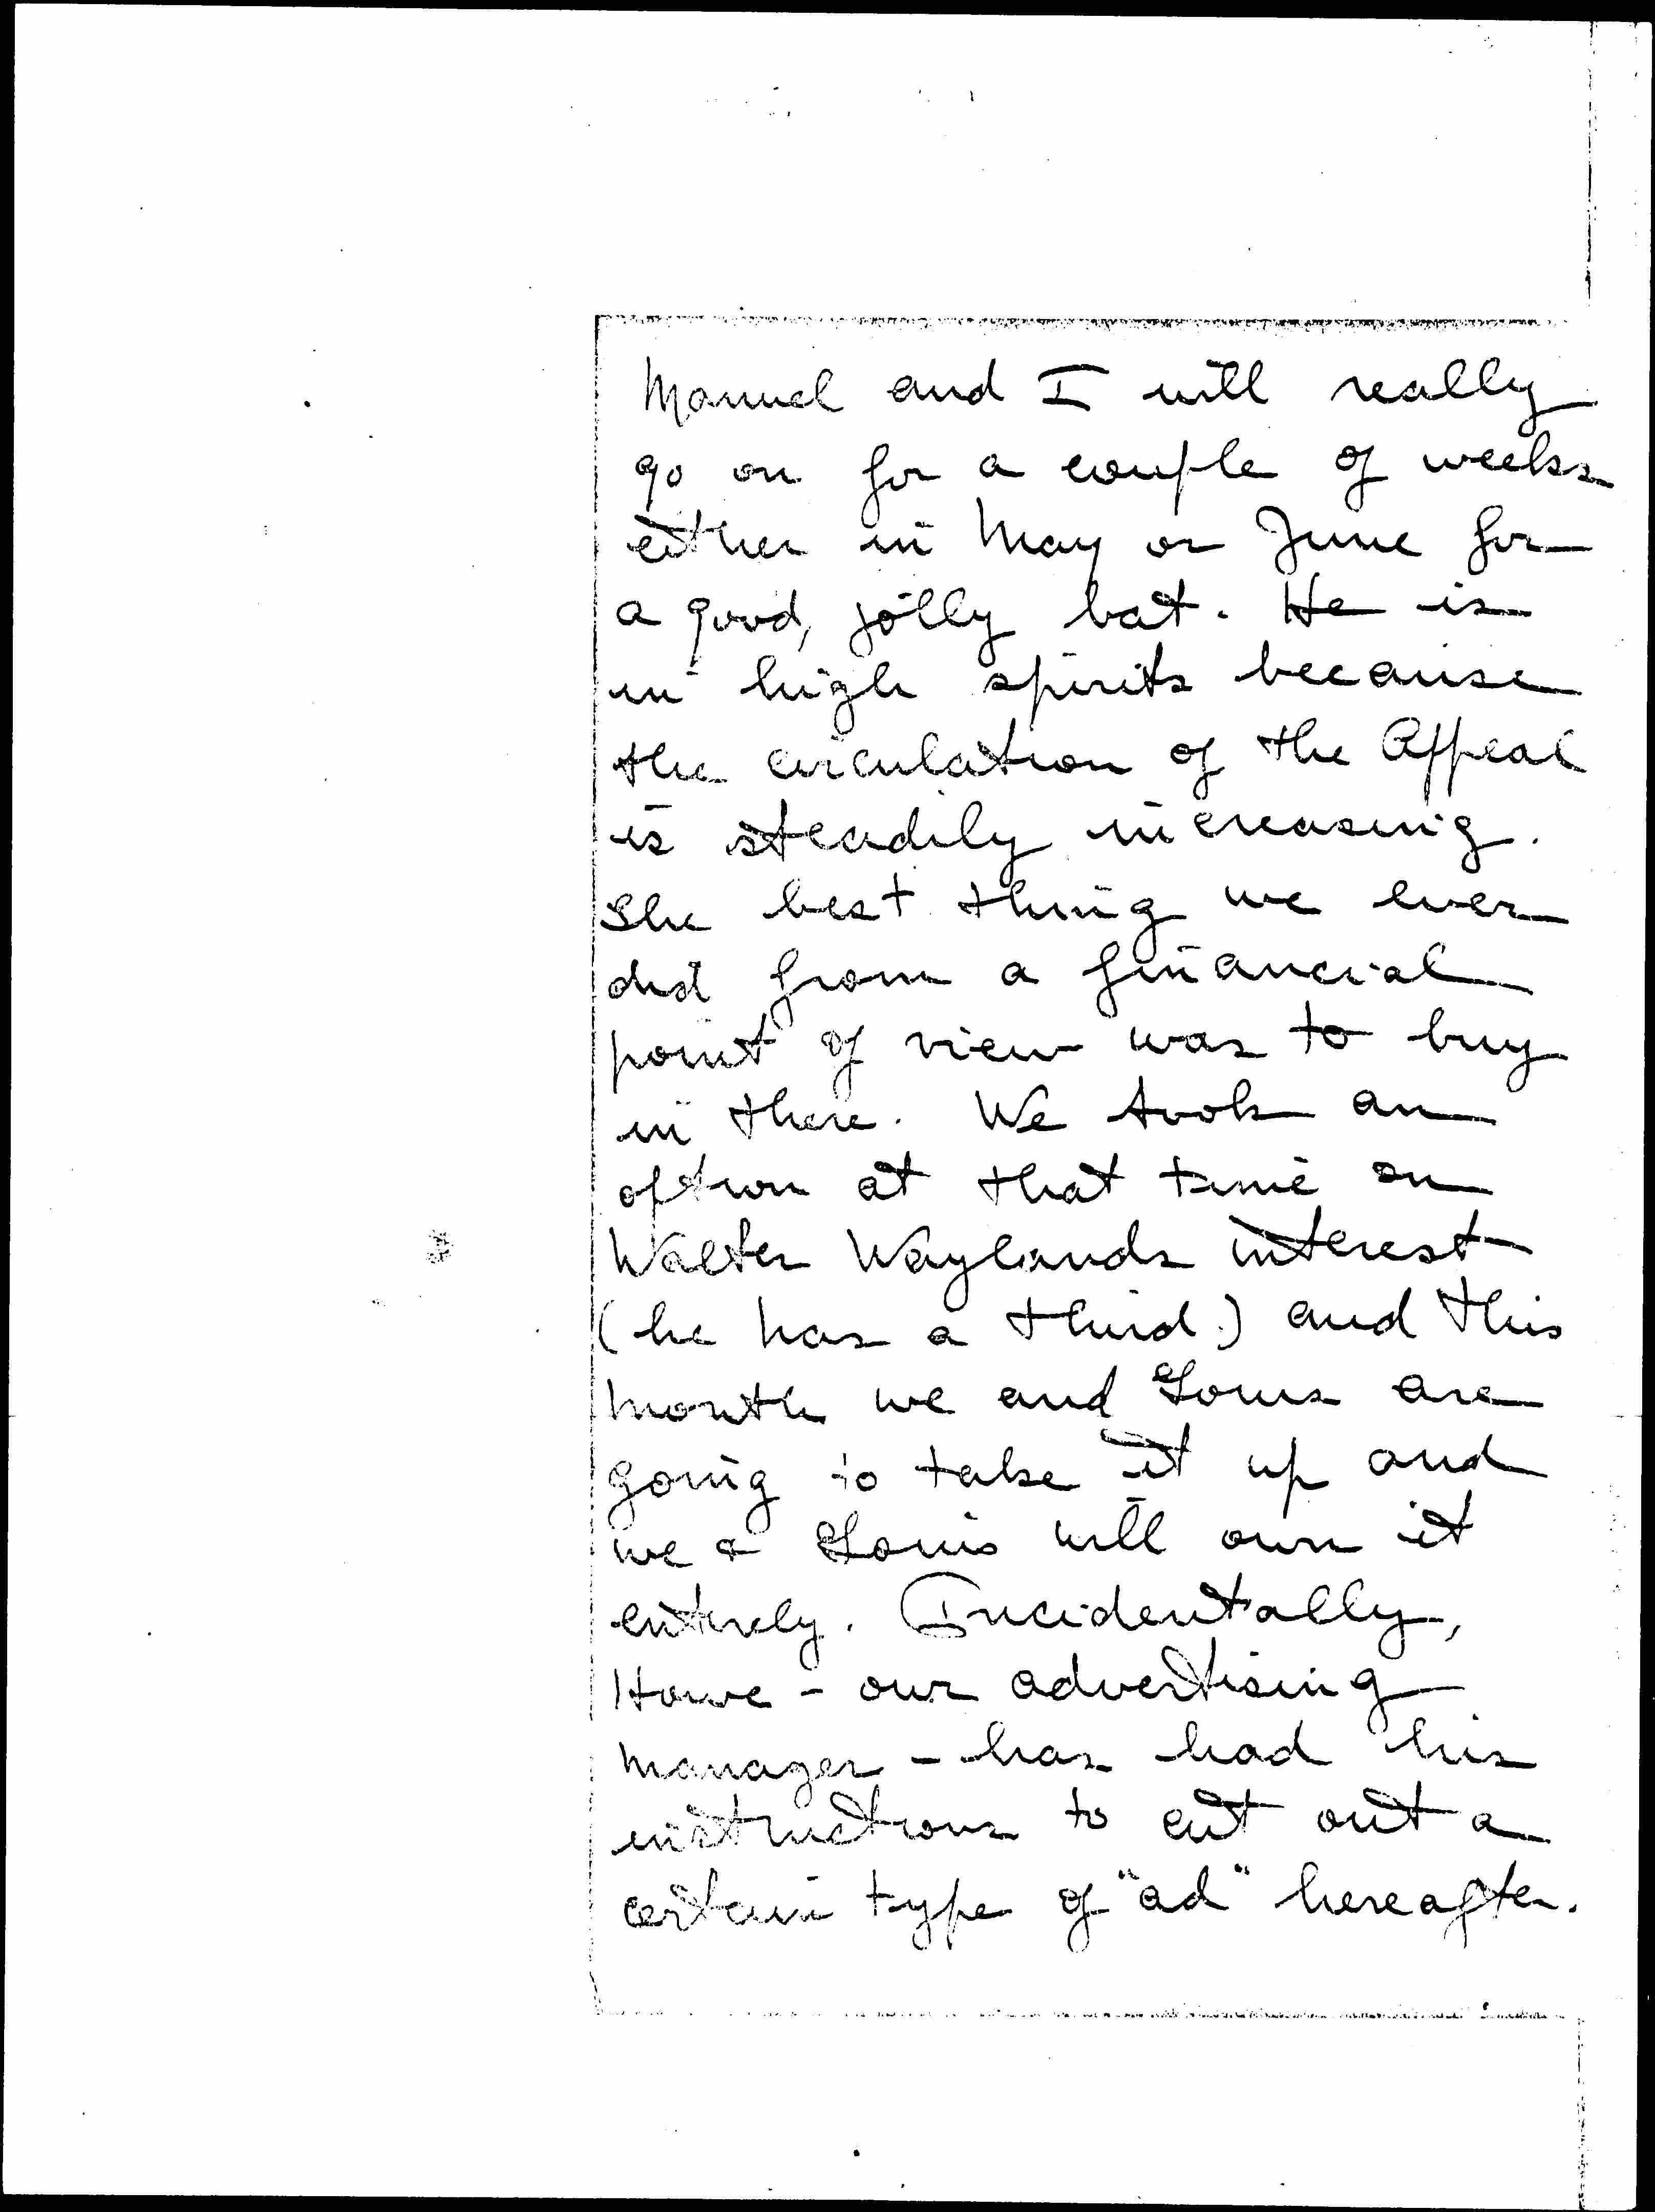 Manuel and I will really
go on for a couple of weeks
either in May or June for
a good, jolly bat. He is
in high spirits because
the circulation of the Appeal
is steadily increasing.
The best thing we ever
did from a financial
point of view was to buy
in there. We took an
option at that time on
Walter Waylands interest
(he has a third) and this
month we and Louis are
going to take it up and
we & Louis will own it
entirely. Incidentally,
Howe - our advertising
manager - has had his
instructions to cut out a
certain type of "ad" hereafter.